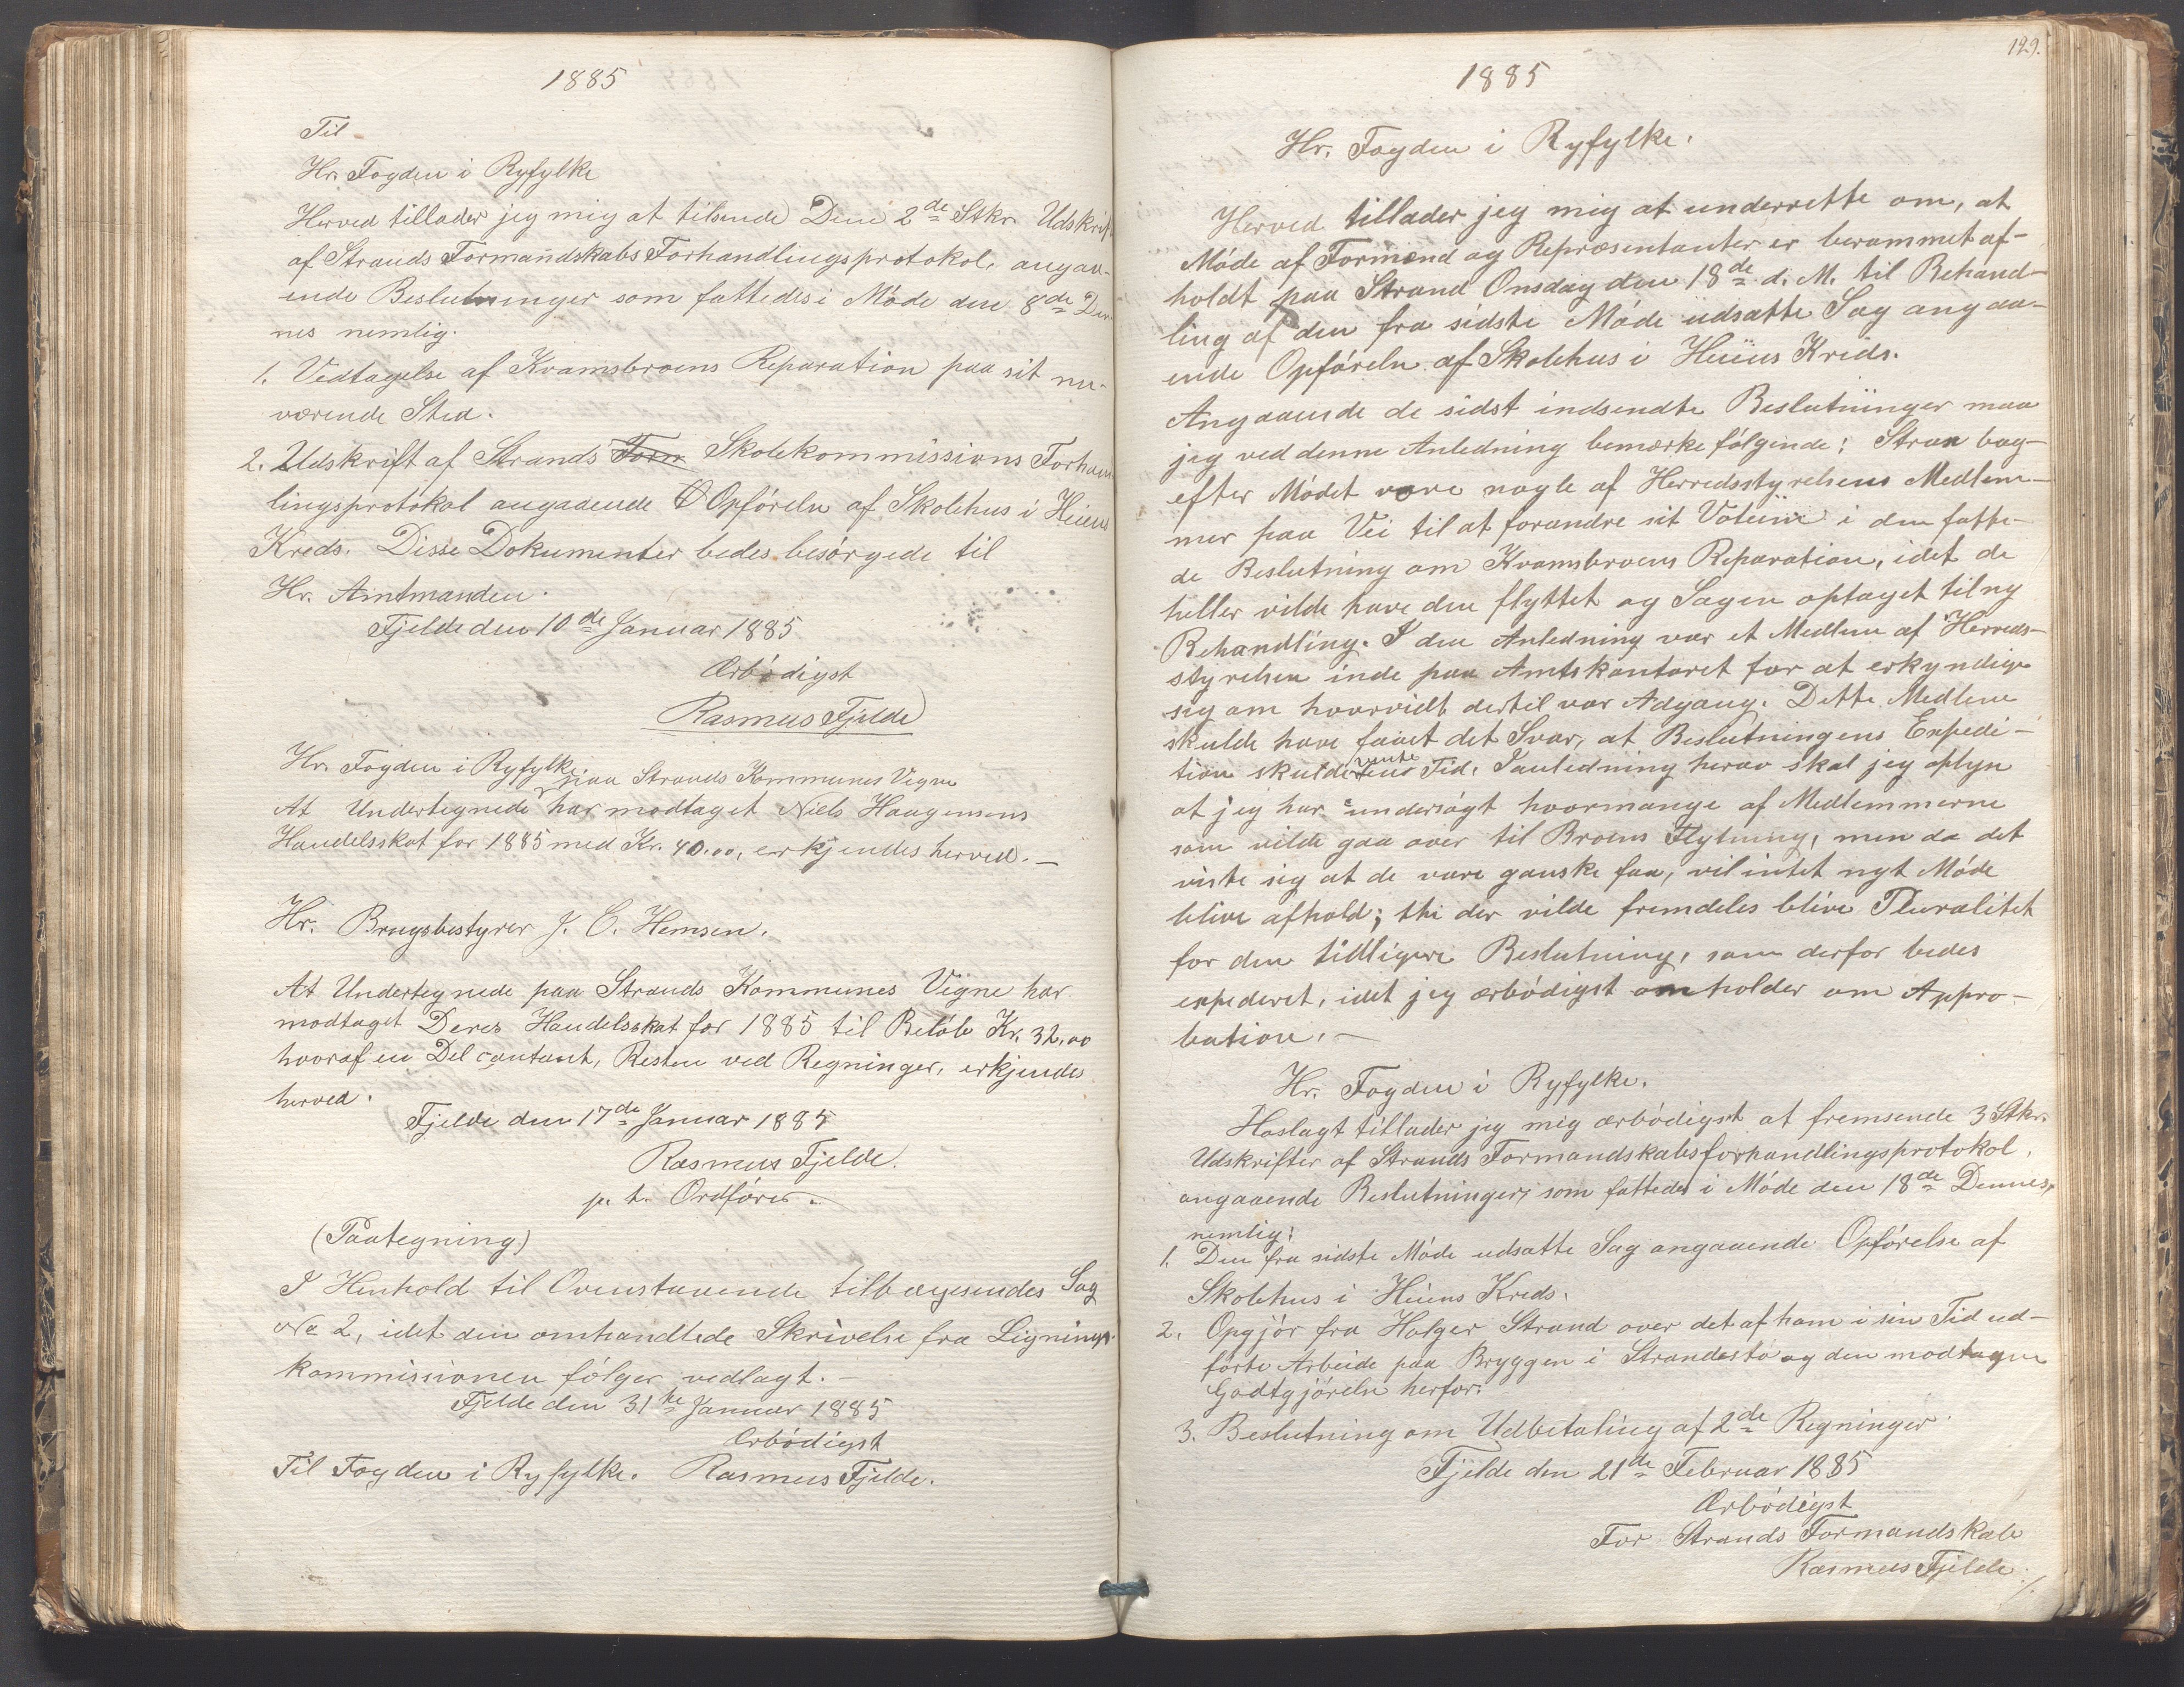 1885
Til
Hr. Fogden i Ryfylke
Herved tillader jeg mig at tilsende Dem 2de Stkr. Udskrift
af Strands Formandskabs Forhandlingsprotokol, angaa-
ende Beslutninger som fattedes i Møde den 8de Den-
nes nemlig.
1. Vedtagelse af Kramsbroens Reparation paa sit nu-
værende Sted.
2. Udskrift af Strands Form Skolekommissions Forhand
lingsprotokol angaaende O Opførelse af Skolehus i Heiens
Kreds. Disse Dokumenter bedes besørgede til
Hr. Amtmanden.
Fjelde den 10de Januar 1885
Ærbødigst
Rasmus Fjelde
Hr. Fogden i Ryfylke.
paa Strands Kommunes Vegne
At Undertegnede har modtaget Niels Haagensens
Handelsskat for 1885 med Kr. 40.00, erkjendes herved. —
Hr. Brugsbestyrer J. C. Hemsen.
At Undertegnede paa Strands Kommunes Vegne har
modtaget Deres Handelsskat for 1885 til Beløb Kr. 32.00
hvoraf en Del contant, Resten ved Regninger, erkjendes
herved.
Fjelde den 17de Januar 1885
Rasmus Fjelde.
p. t. Ordfører.
(Paategning)
I Henhold til Ovenstaaende tilbagesendes Sag
No 2, idet den omhandlede Skrivelse fra Lignings-
kommissionen følger vedlagt. —
Fjelde den 31te Januar 1885
Ærbødigst
Til Fogden i Ryfylke. Rasmus Fjelde.
129.
1885
Hr. Fogden i Ryfylke.
Herved tillader jeg mig at underrette om, at
Møde af Formænd og Repræsentanter er berammet af-
holdt paa Strand Onsdag den 18de d. M. til Behand-
ling af den fra sidste Møde udsatte Sag angaa-
ende Opførelse af Skolehus i Heiens Krids.
Angaaende de sidst indsendte Beslutninger maa
jeg ved denne Anledning bemærke følgende: Strax bag-
efter Mødet vare nogle af Herredsstyrelsens Medlem-
mer paa Vei til at forandre sit Votum i den fatte-
de Beslutning om Kramsbroens Reparation, idet de
heller vilde have den flyttet og Sagen optaget til ny
Behandling. I den Anledning var et Medlem af Herreds-
styrelsen inde paa Amtskontoret for at erkyndige
sig om hvorvidt dertil var Adgang. Dette Medlem
skulde have faaet det Svar, at Beslutningens Expedi-
vente
tion skulde en Tid. I anledning herav skal jeg oplyse
at jeg har undersøgt hvormange af Medlemmerne
som vilde gaa over til Broens Flytning, men da det
viste sig at de vare ganske faa, vil intet nyt Møde
blive afhold; thi der vilde fremdeles blive Pluralitet
for den tidligere Beslutning, som derfor bedes
expederet, idet jeg ærbødigst anholder om Appro-
bation. —
Hr. Fogden i Ryfylke.
Hoslagt tillader jeg mig ærbødigst at fremsende 3 Stkr.
Udskrifter af Strands Formandskabsforhandlingsprotokol,
angaaende Beslutninger, som fattedes i Møde den 18de Dennes,
nemlig:
1. Den fra sidste Møde udsatte Sag angaaende Opførelse af
Skolehus i Heiens Kreds.
2. Opgjør fra Holger Strand over det af ham i sin Tid ud-
førte Arbeide paa Bryggen i Strandestø og den modtagne
Godtgjørelse herfor.
3. Beslutning om Udbetaling af 2de Regninger.
Fjelde den 21de Februar 1885
Ærbødigst
For Strands Formandskab
Rasmus Fjelde